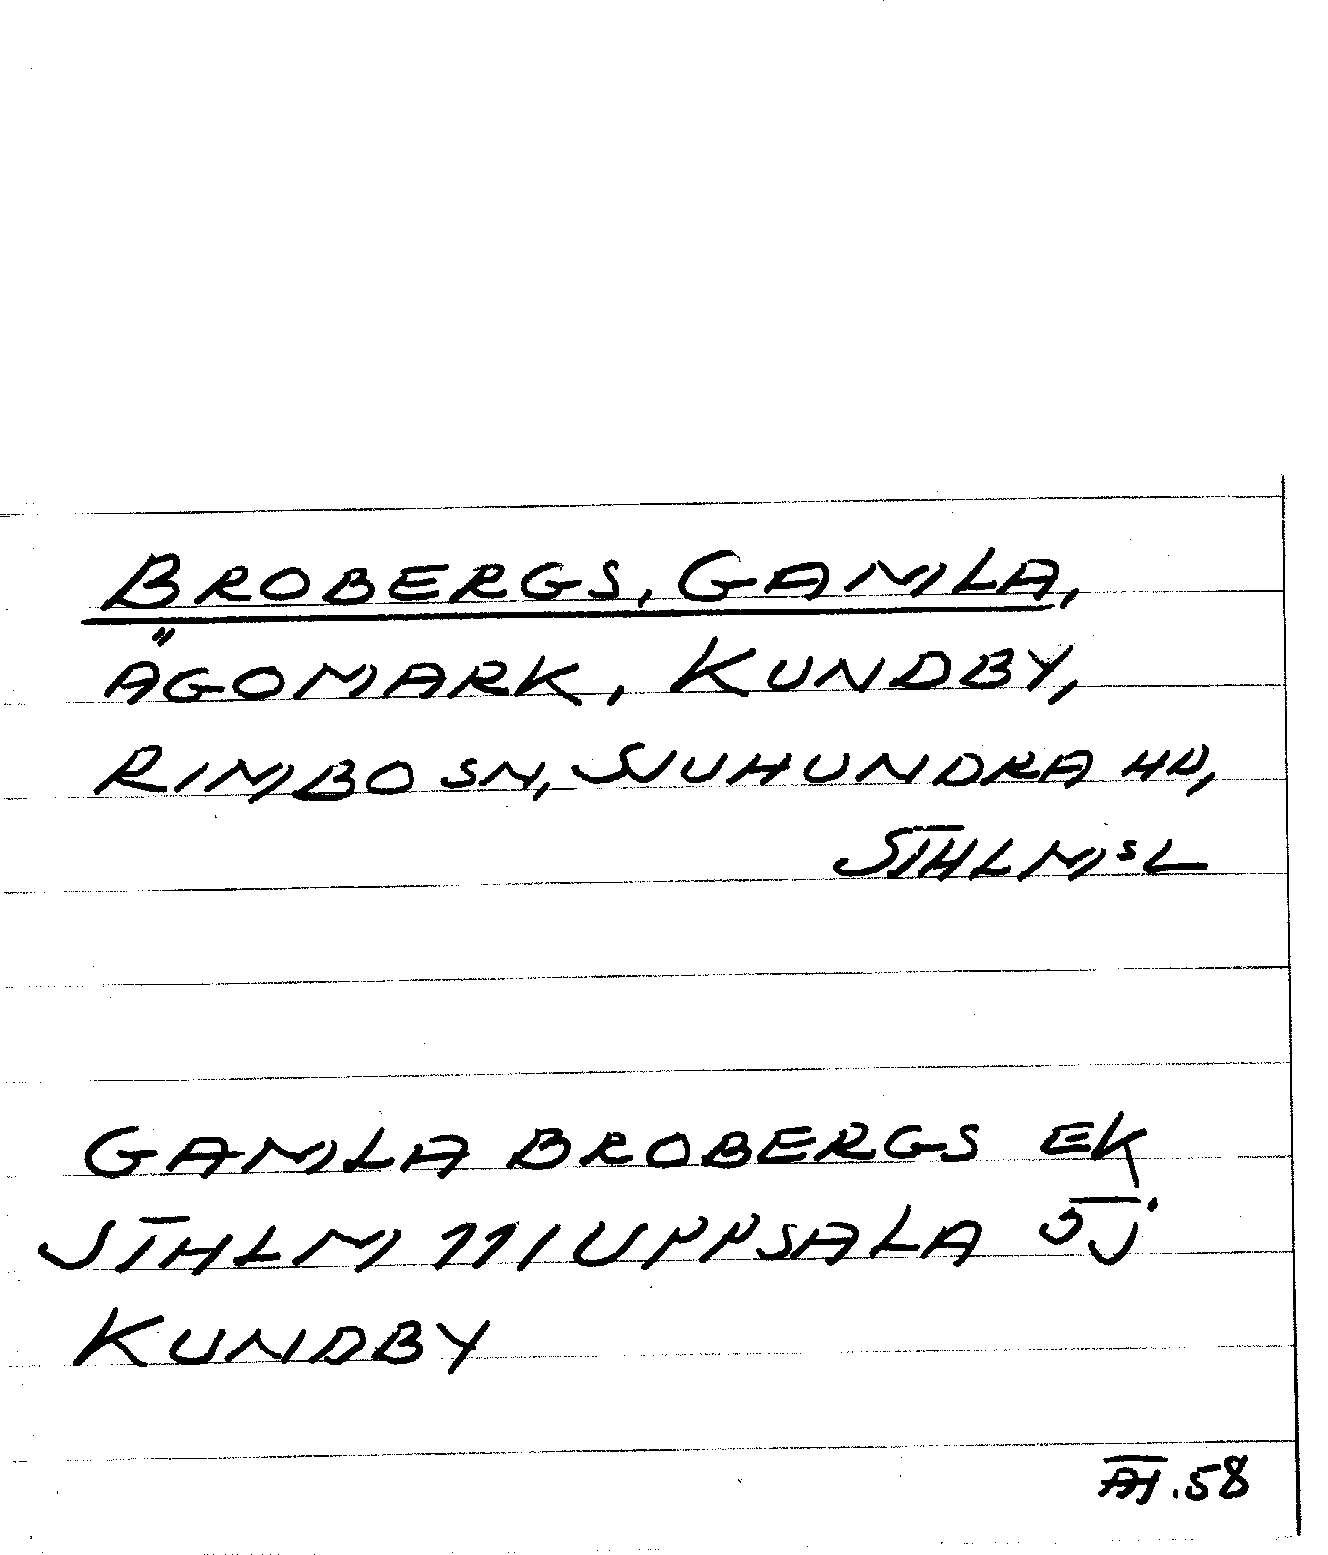 BROBERGS, GAMLA,
ÄGOMARK, KUNDBY,
RIMBO SN, SJUHUNDRA HD,
STHLMSL
GAMLA BROBERGS EK
STHLM 111 UPPSALA
KUNDBY
.58